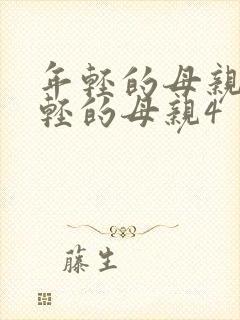 年轻的母親
轻的母親4
藤生